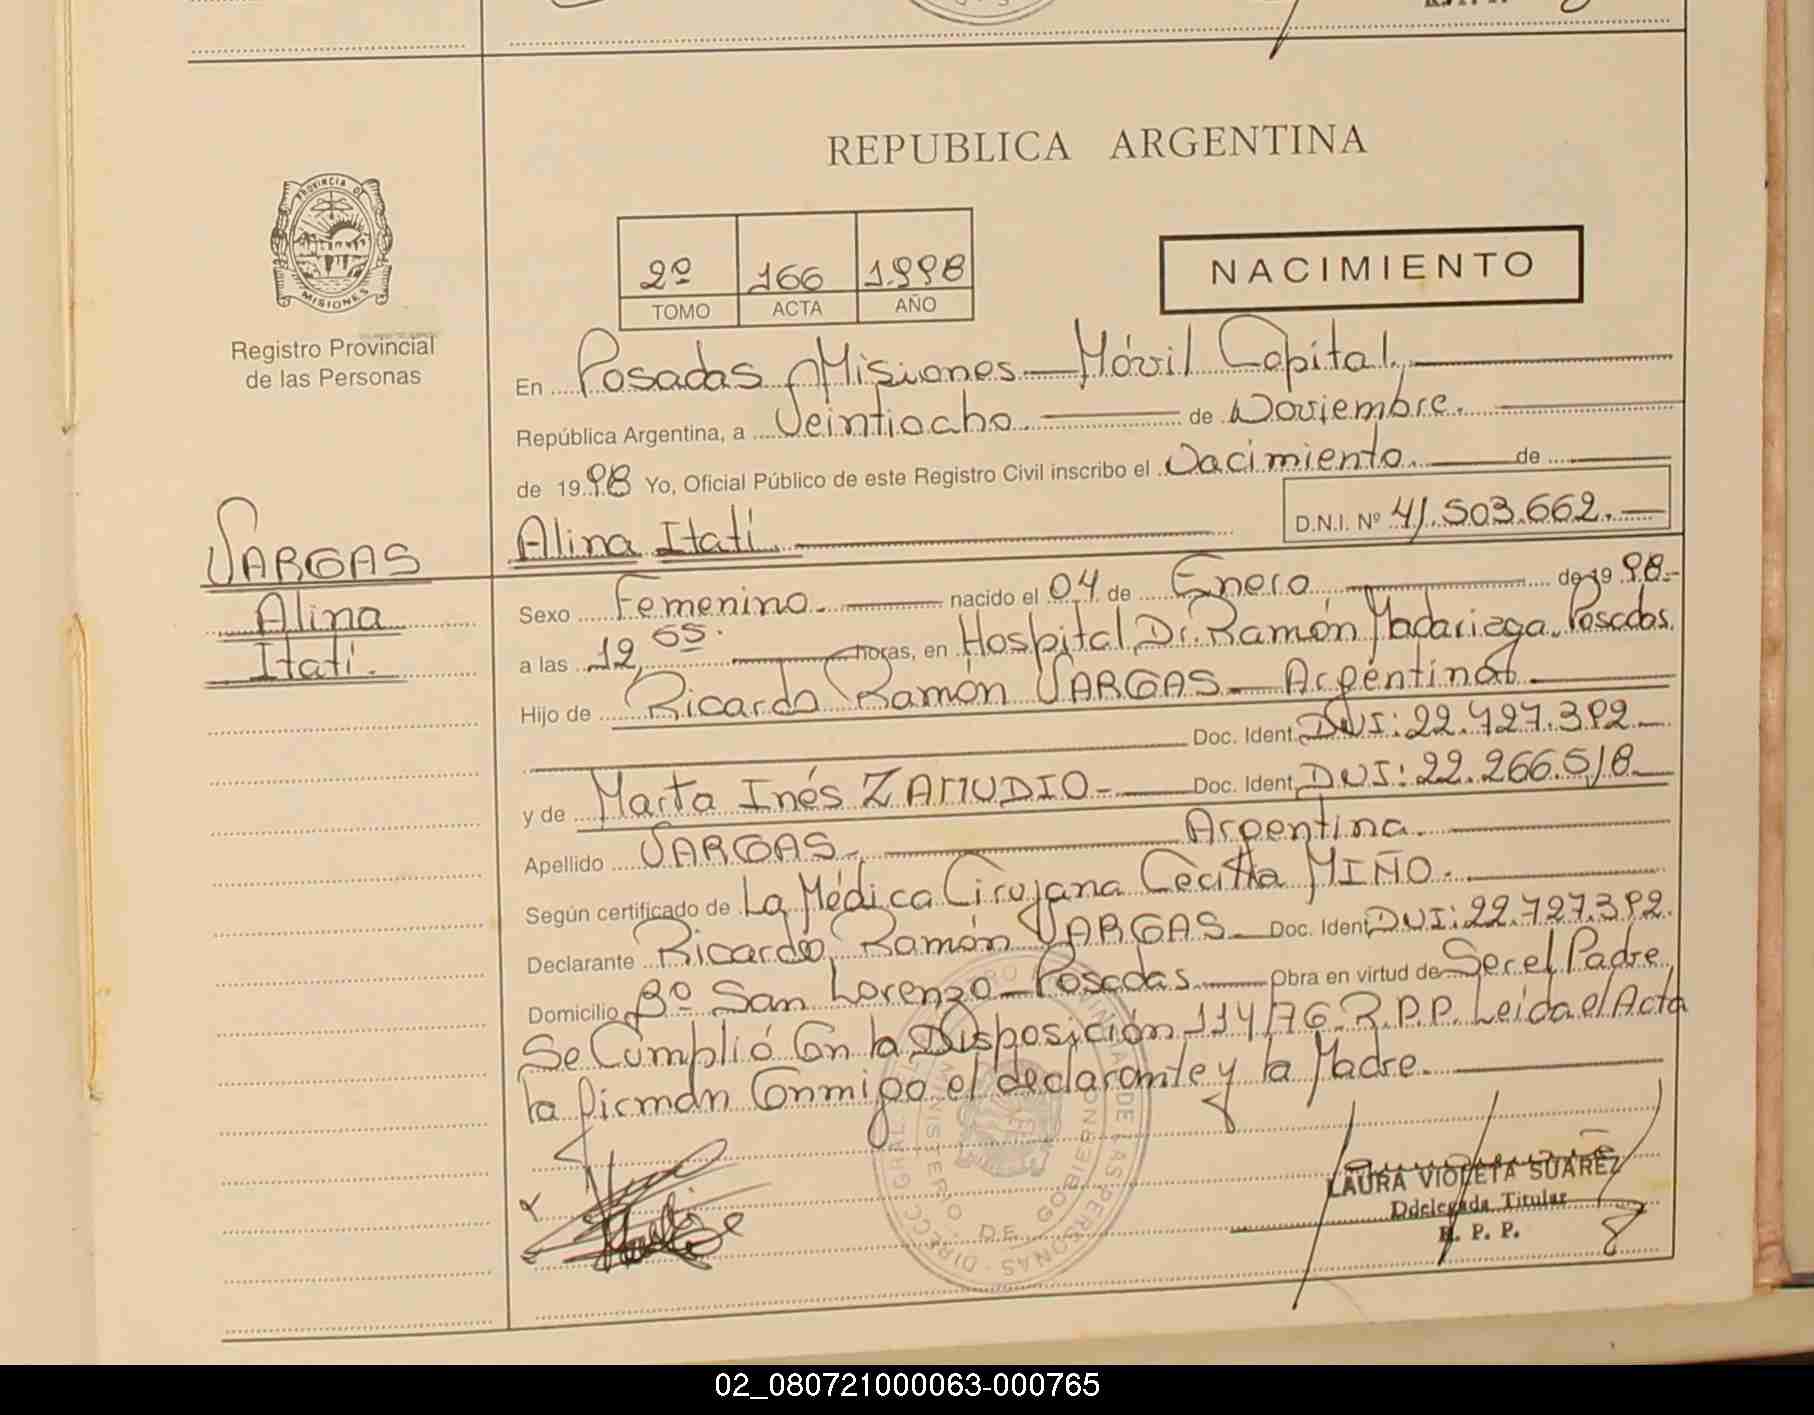 REPUBLICA ARGENTINA
PROVINCIA DE
MISIONES
Registro Provincial
de las Personas
2º 166 1.998
TOMO ACTA AÑO
NACIMIENTO
En Posadas, Misiones - Móvil Capital,
República Argentina, a Veintiocho. de Noviembre.
de 19 98 Yo, Oficial Público de este Registro Civil inscribo el Nacimiento. de
Alina Itatí. D.N.I. Nº 41.503.662.
VARGAS
Alina
Itatí.
Sexo Femenino. nacido el 04 de Enero de 19 98.-
a las 12,05. horas, en Hospital Dr. Ramón Madariaga. Posadas.
Hijo de Ricardo Ramón VARGAS - Argentino.
Doc. Ident. DNI: 22.727.392
y de Marta Inés ZAMUDIO - Doc. Ident. DNI: 22.266.518
Apellido VARGAS. Argentina.
Según certificado de La Médica Cirujana Cecilia MIÑO.
Declarante Ricardo Ramón VARGAS Doc. Ident. DNI: 22.727.392.
Domicilio Bº San Lorenzo - Posadas Obra en virtud de Ser el Padre
Se Cumplió Con la Disposición 114/76 R.P.P. Leída el Acta
la firman Conmigo el declarante y la Madre.
LAURA VIOLETA SUAREZ
Ddelegada Titular
R. P. P.
02_080721000063-000765